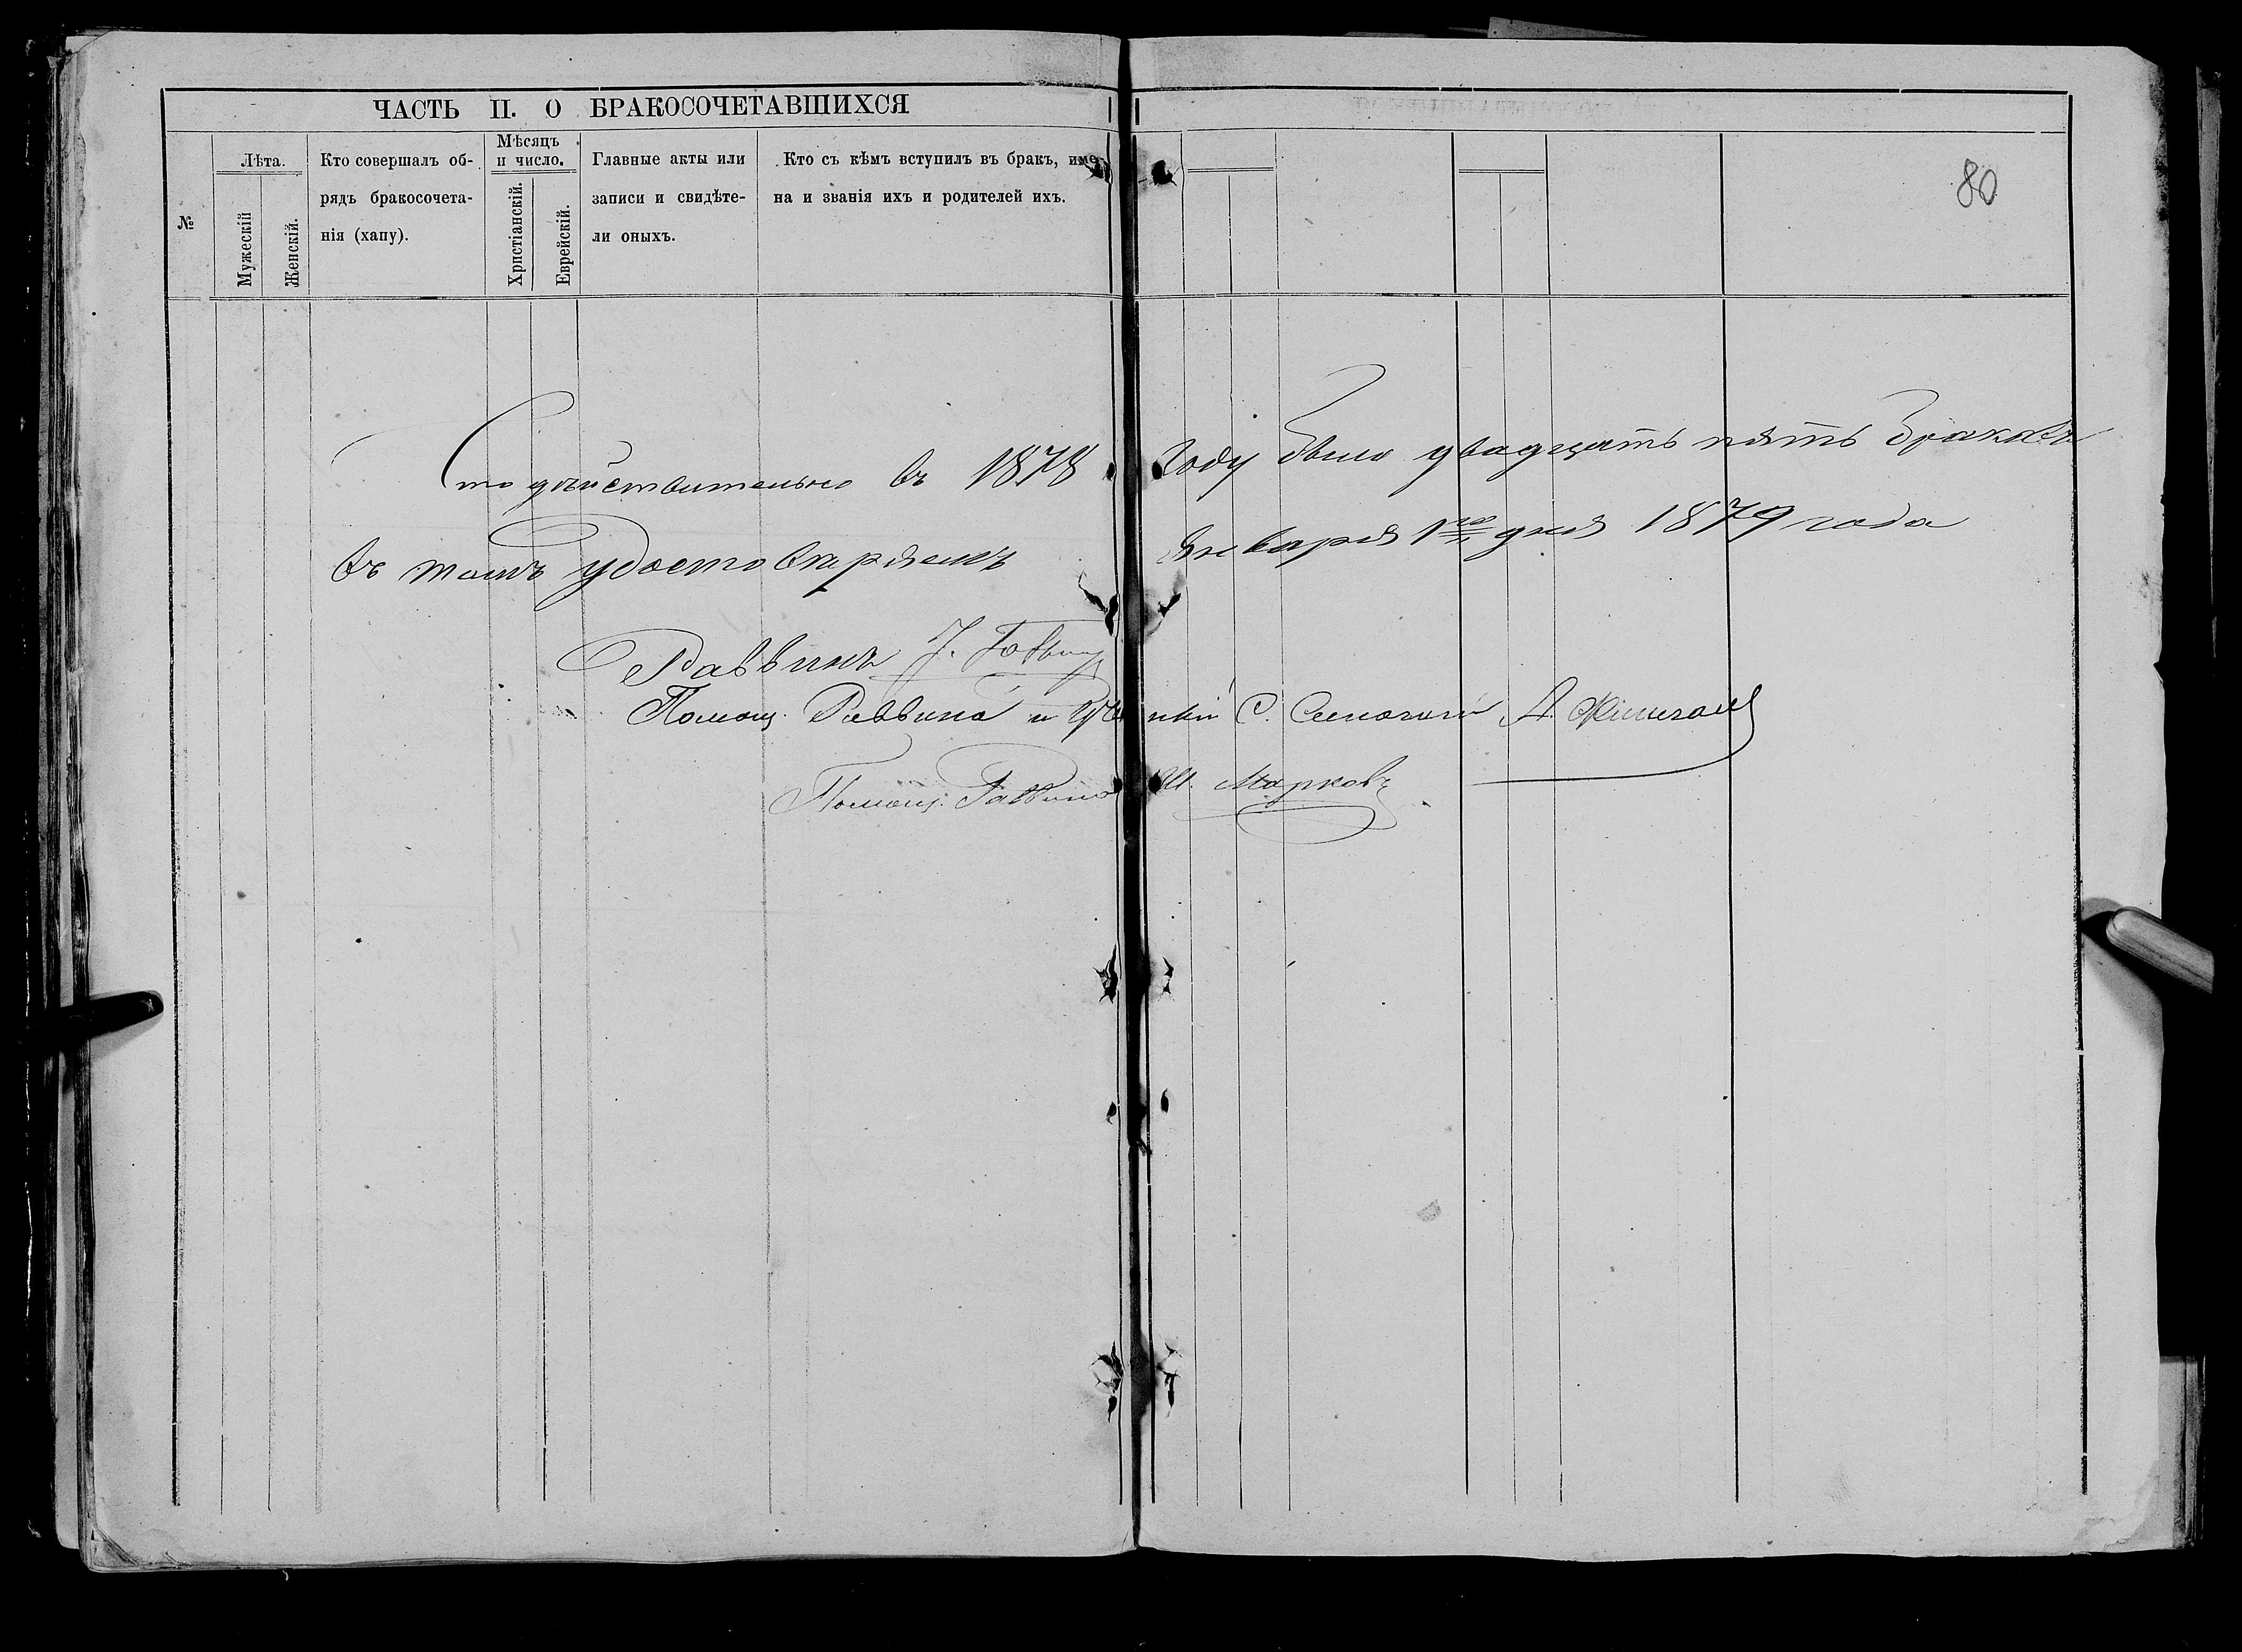 ЧАСТЬ II. О БРАКОСОЧЕТАВШИХСЯ
№
Лѣта.
Мужескій
Женскій.
Кто совершалъ об-
рядъ бракосочета-
нія (хапу).
Мѣсяцъ
и число.
Христіанскій.
Еврейскій.
Главные акты или
записи и свидѣте-
ли оныхъ.
Кто съ кѣмъ вступилъ въ бракъ, име-
на и званія ихъ и родителей ихъ.
80
Что дѣйствительно въ 1878 году было двадцать пять браковъ
въ томъ удостовѣряемъ Января 1го дня 1879 года
Раввинъ
Помощ. Раввина и С.
Помощ. Раввина Марковъ